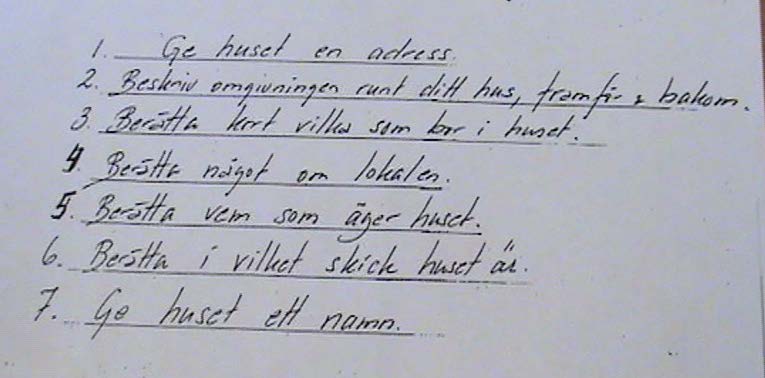 1. Ge huset en adress.
2. Beskriv omgivningen runt ditt hus, framför & bakom.
3. Berätta kort vilka som bor i huset.
4. Berätta något om lokalen.
5. Berätta vem som äger huset.
6. Berätta i vilket skick huset är.
7. Ge huset ett namn.